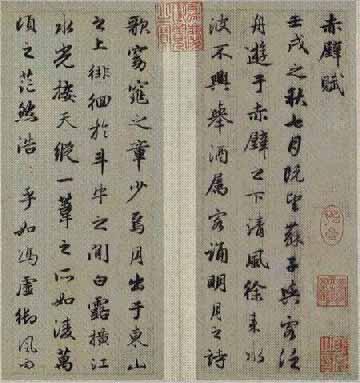 赤壁賦
壬戌之秋七月既望蘇子與客泛
舟遊于赤壁之下清風徐來水
波不興舉酒屬客誦明月之詩
歌窈窕之章少焉月出于東山
之上徘徊於斗牛之間白露橫江
水光接天縱一葦之所如凌萬
頃之茫然浩乎如馮虛御風而